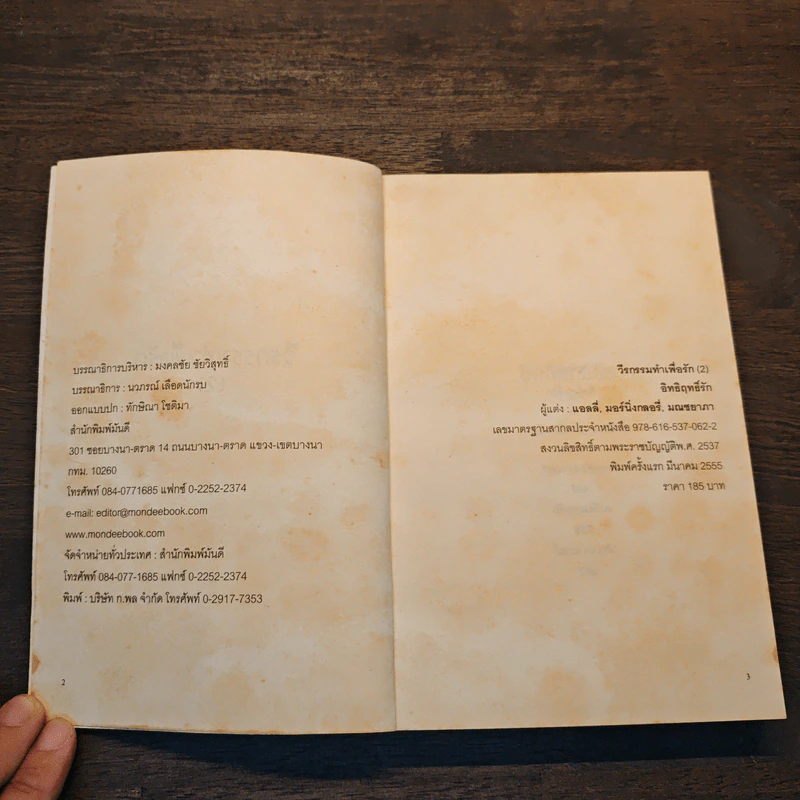 บรรณาธิการบริหาร : มงคลชัย ชัยวิสุทธิ์
บรรณาธิการ : นวภรณ์ เลือดนักรบ
ออกแบบปก : ทักษิณา โชติมา
สำนักพิมพ์มันดี
301 ซอยบางนา-ตราด 14 ถนนบางนา-ตราด แขวง-เขตบางนา
กทม. 10260
โทรศัพท์ 084-0771685 แฟกซ์ 0-2252-2374
e-mail: editor@mondeebook.com
www.mondeebook.com
จัดจำหน่ายทั่วประเทศ : สำนักพิมพ์มันดี
โทรศัพท์ 084-077-1685 แฟกซ์ 0-2252-2374
พิมพ์ : บริษัท ก.พล จำกัด โทรศัพท์ 0-2917-7353
2
วีรกรรมทำเพื่อรัก (2)
อิทธิฤทธิ์รัก
ผู้แต่ง : แอลลี่, มอร์นิ่งกลอรี่, มณชยาภา
เลขมาตรฐานสากลประจำหนังสือ 978-616-537-062-2
สงวนลิขสิทธิ์ตามพระราชบัญญัติพ.ศ. 2537
พิมพ์ครั้งแรก มีนาคม 2555
ราคา 185 บาท
3